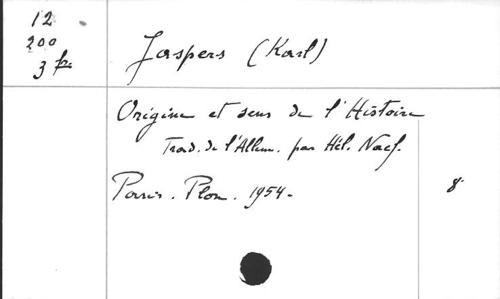 12
200
3 fr.
Jaspers (Karl)
Origine et sens de l'Histoire
Trad. de l'Allem. par Hél. Naef.
Paris. Plon. 1954.
8°